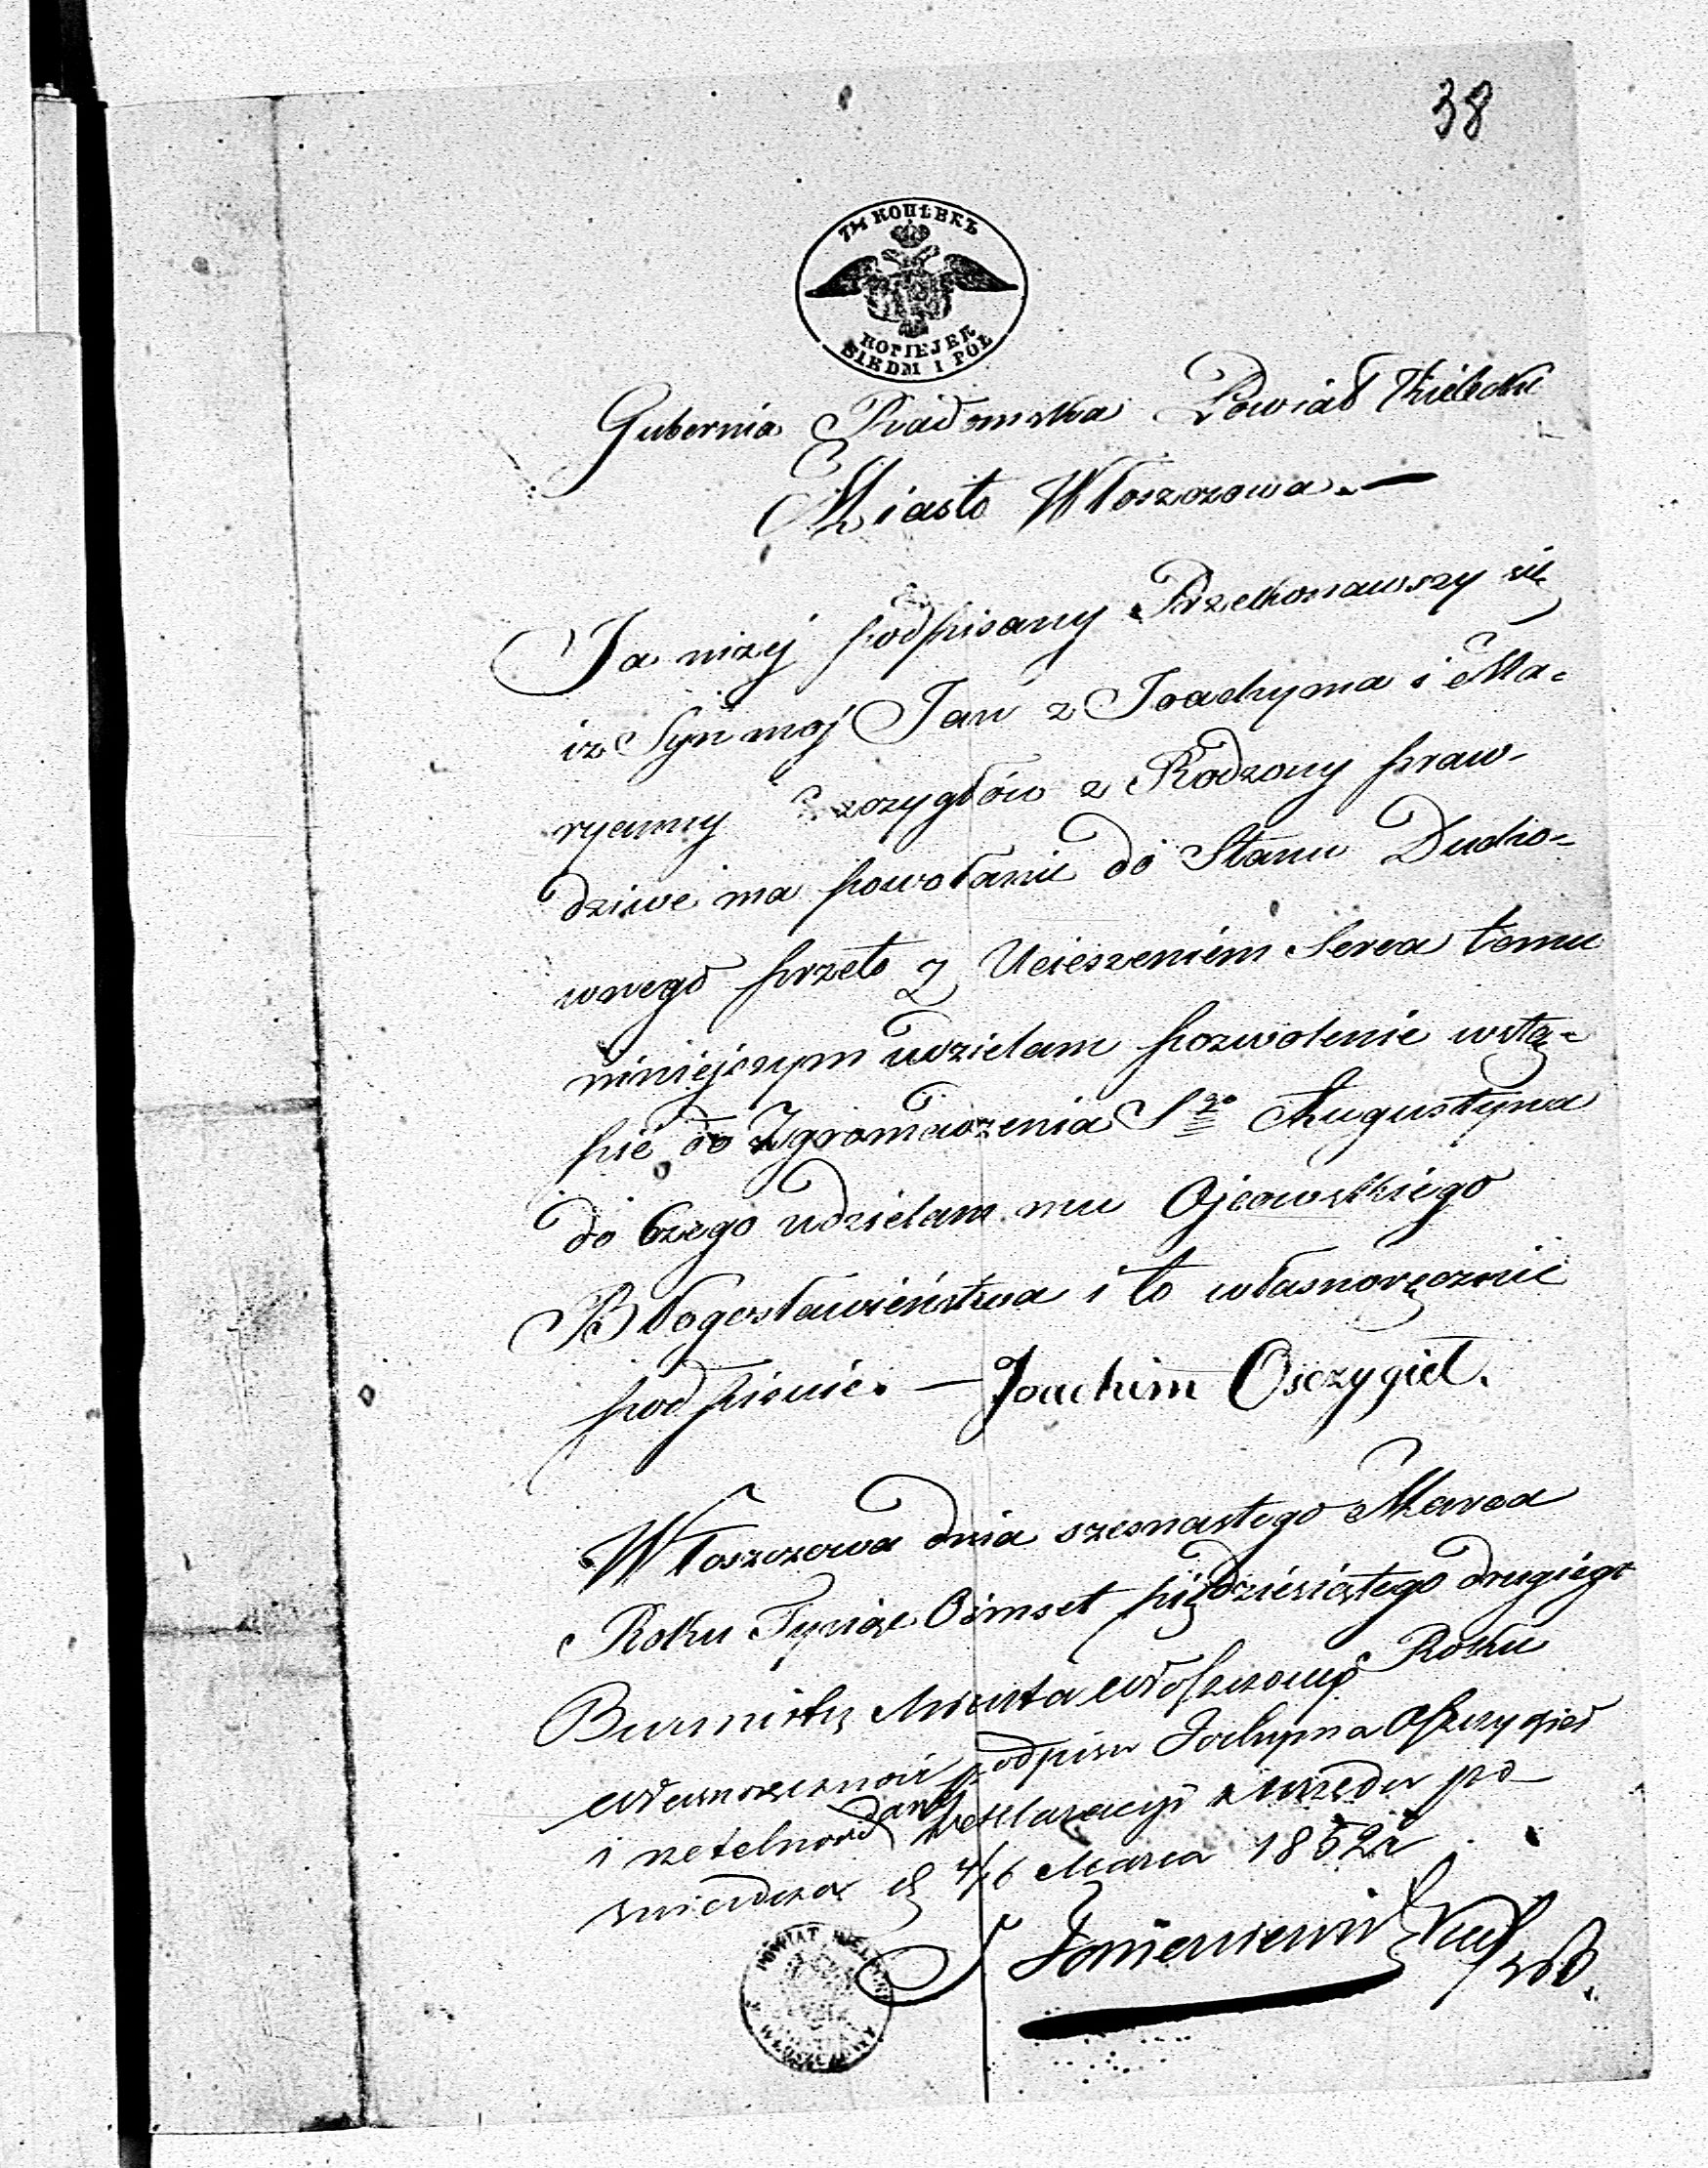 38
7½ КОПѢЕКЪ
KOPIEJEK
SIEDM I PÓŁ
Gubernia Radomska Powiat Kielecki
Miasto Włoszczowa. —
Ja niżej podpisany Przekonawszy się
iż Syn moj Jan z Joachyma i Ma-
ryanny Szczygłów z Rodzony praw-
dziwe ma powołanie do Stanu Ducho-
wnego przeto z Ucieszeniem Serca temu
niniejszym udzielam pozwolenie wstą-
pić do Zgromadzenia Sgo Augustyna
do Czego udzielam mu Ojcowskiego
Błogosławieństwa i to własnoręcznie
podpisuie. — Joachim Osczygieł.
Włoszczowa dnia szesnastego Marca
Roku Tysiąc Ośmset piędziesiątego drugiego
Roku
Burmistrz Miasta Włoszczowy
Własnoręczność podpisu Jochyma
i rzetelność danej Deklaracyi z urzędu po-
świadcza d 4/16 Marca 1852 r
POWIAT KIELECKI